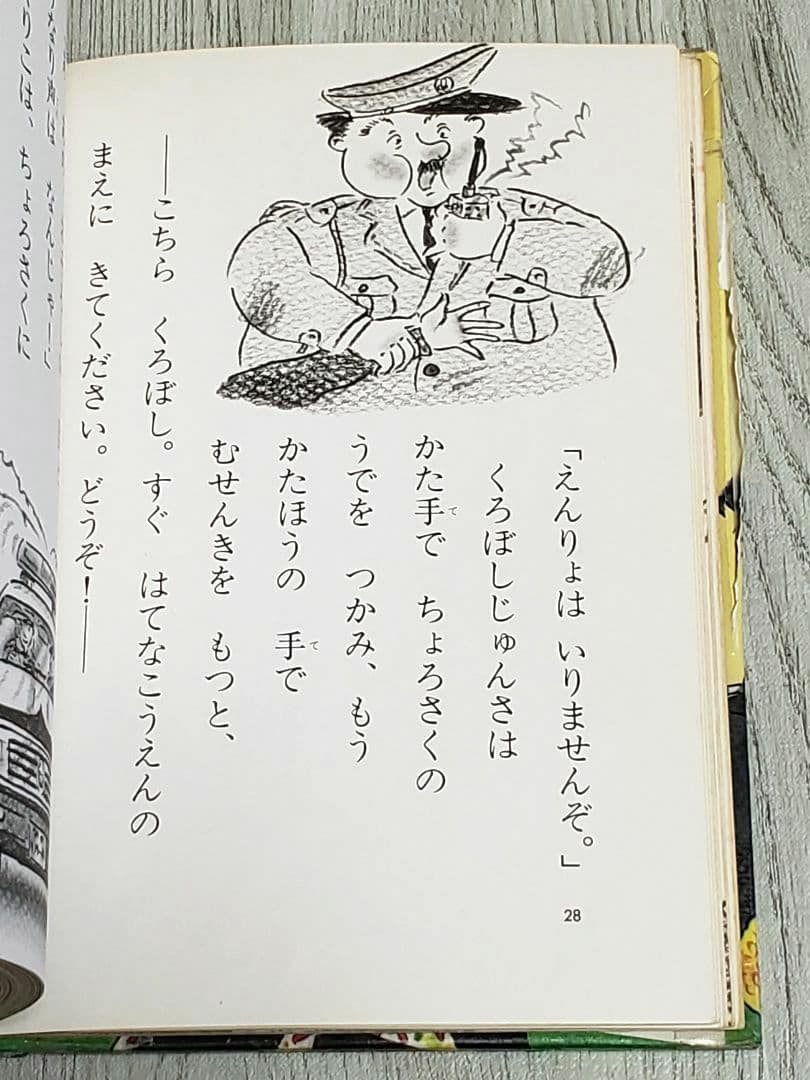 「えんりょは いりませんぞ。」
くろぼしじゅんさは
かた手で ちょろさくの
うでを つかみ、もう
かたほうの 手で
むせんきを もつと、
──こちら くろぼし。すぐ はてなこうえんの
まえに きてください。どうぞ！──
28